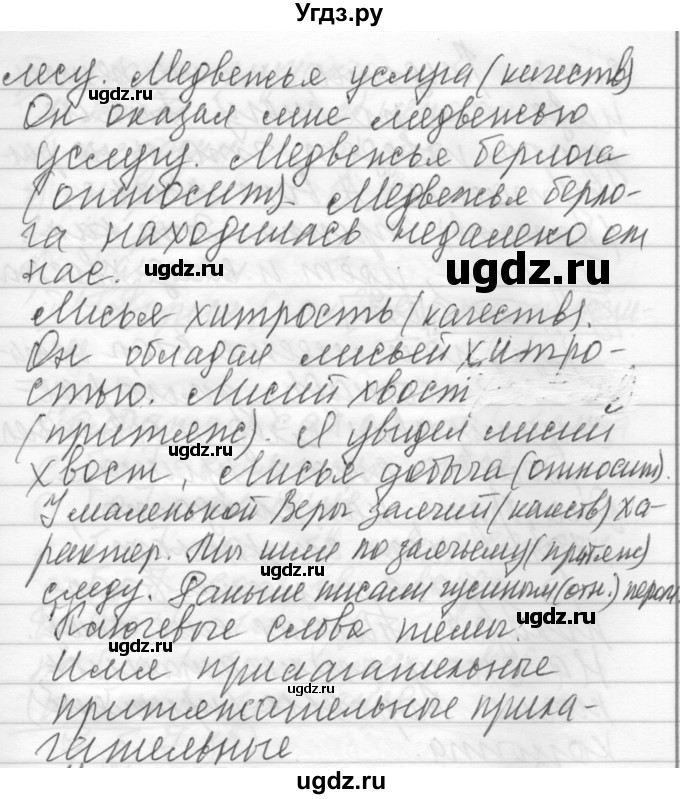 Угдз.ру
лесу. Медвежья услуга (качеств)
Он оказал мне медвежью
услугу. Медвежья берлога
(относит). Медвежья берло-
га находилась недалеко от
нас. ugdz.ru ugdz.ru
Лисья хитрость (качеств).
Он обладал лисьей хитро-
стью. Лисий хвост
(притяж). Я увидел лисий
ugdz.ru
хвост, Лисья добыча (относит).
У маленькой Веры заячий (качеств) ха-
рактер. Мы шли по заячьему (притяж)
ugdz.ru
следу. Раньше писали гусиным (отн.) пером.
ugdz.ru
Ключевые слова темы:
Имя прилагательные
ugdz.ru
притяжательные прила-
гательные
ugdz.ru